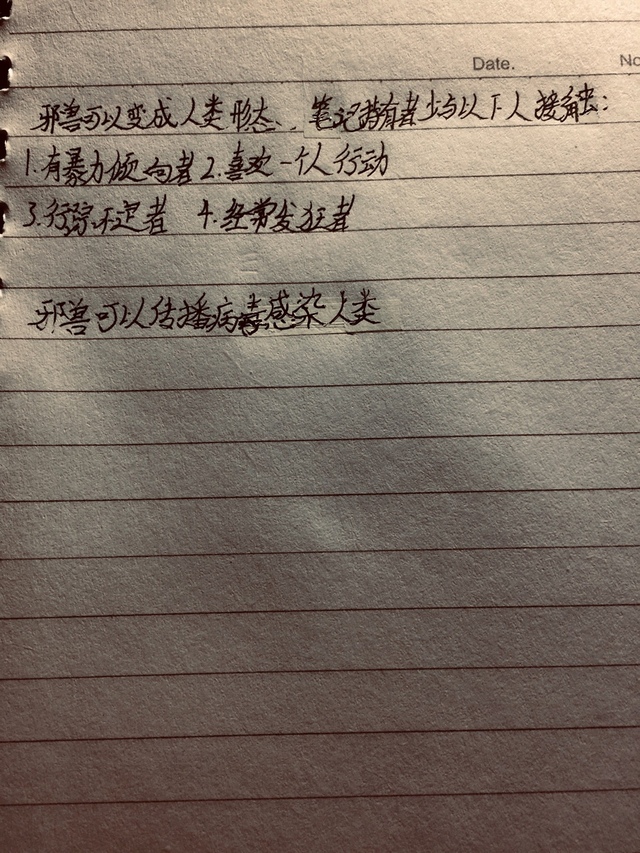 Date.
No
邪兽可以变成人类形态、笔记持有者少与以下人接触：
1.有暴力倾向者 2.喜欢一个人行动
3.行踪不定者 4.经常发狂者
邪兽可以传播病毒感染人类